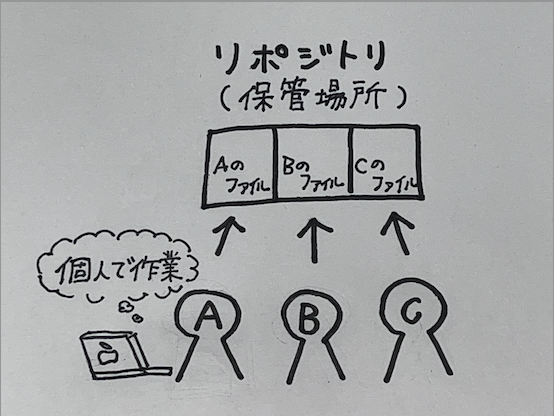 リポジトリ
(保管場所)
Aの
ファイル
Bの
ファイル
Cの
ファイル
個人で作業
A
B
C